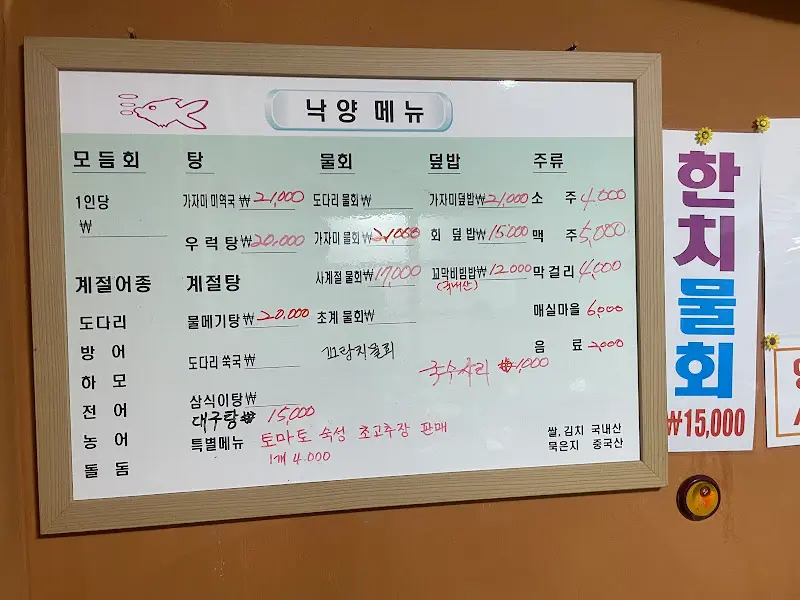 낙양 메뉴
모듬회
1인당
₩
계절어종
도다리
방 어
하 모
전 어
농 어
돌 돔
탕
가자미 미역국 ₩ 21,000
우럭탕 ₩20,000
계절탕
물메기탕 ₩ 20,000
도다리 쑥국 ₩
삼식이탕 ₩
대구탕 ₩ 15,000
특별메뉴 토마토 숙성 초고추장 판매
1개 4.000
물회
도다리 물회 ₩
가자미 물회 ₩21,000
사계절 물회 ₩17,000
초계 물회 ₩
꼬랑치물회
덮밥
가자미덮밥 ₩21,000
회 덮밥 ₩15,000
꼬막비빔밥 ₩12,000
(국내산)
국수사리 ₩1,000
주류
소 주 4,000
맥 주 5,000
막걸리 4,000
매실마을 6,000
음 료 2,000
쌀,김치 국내산
묵은지 중국산
한치물회
₩15,000